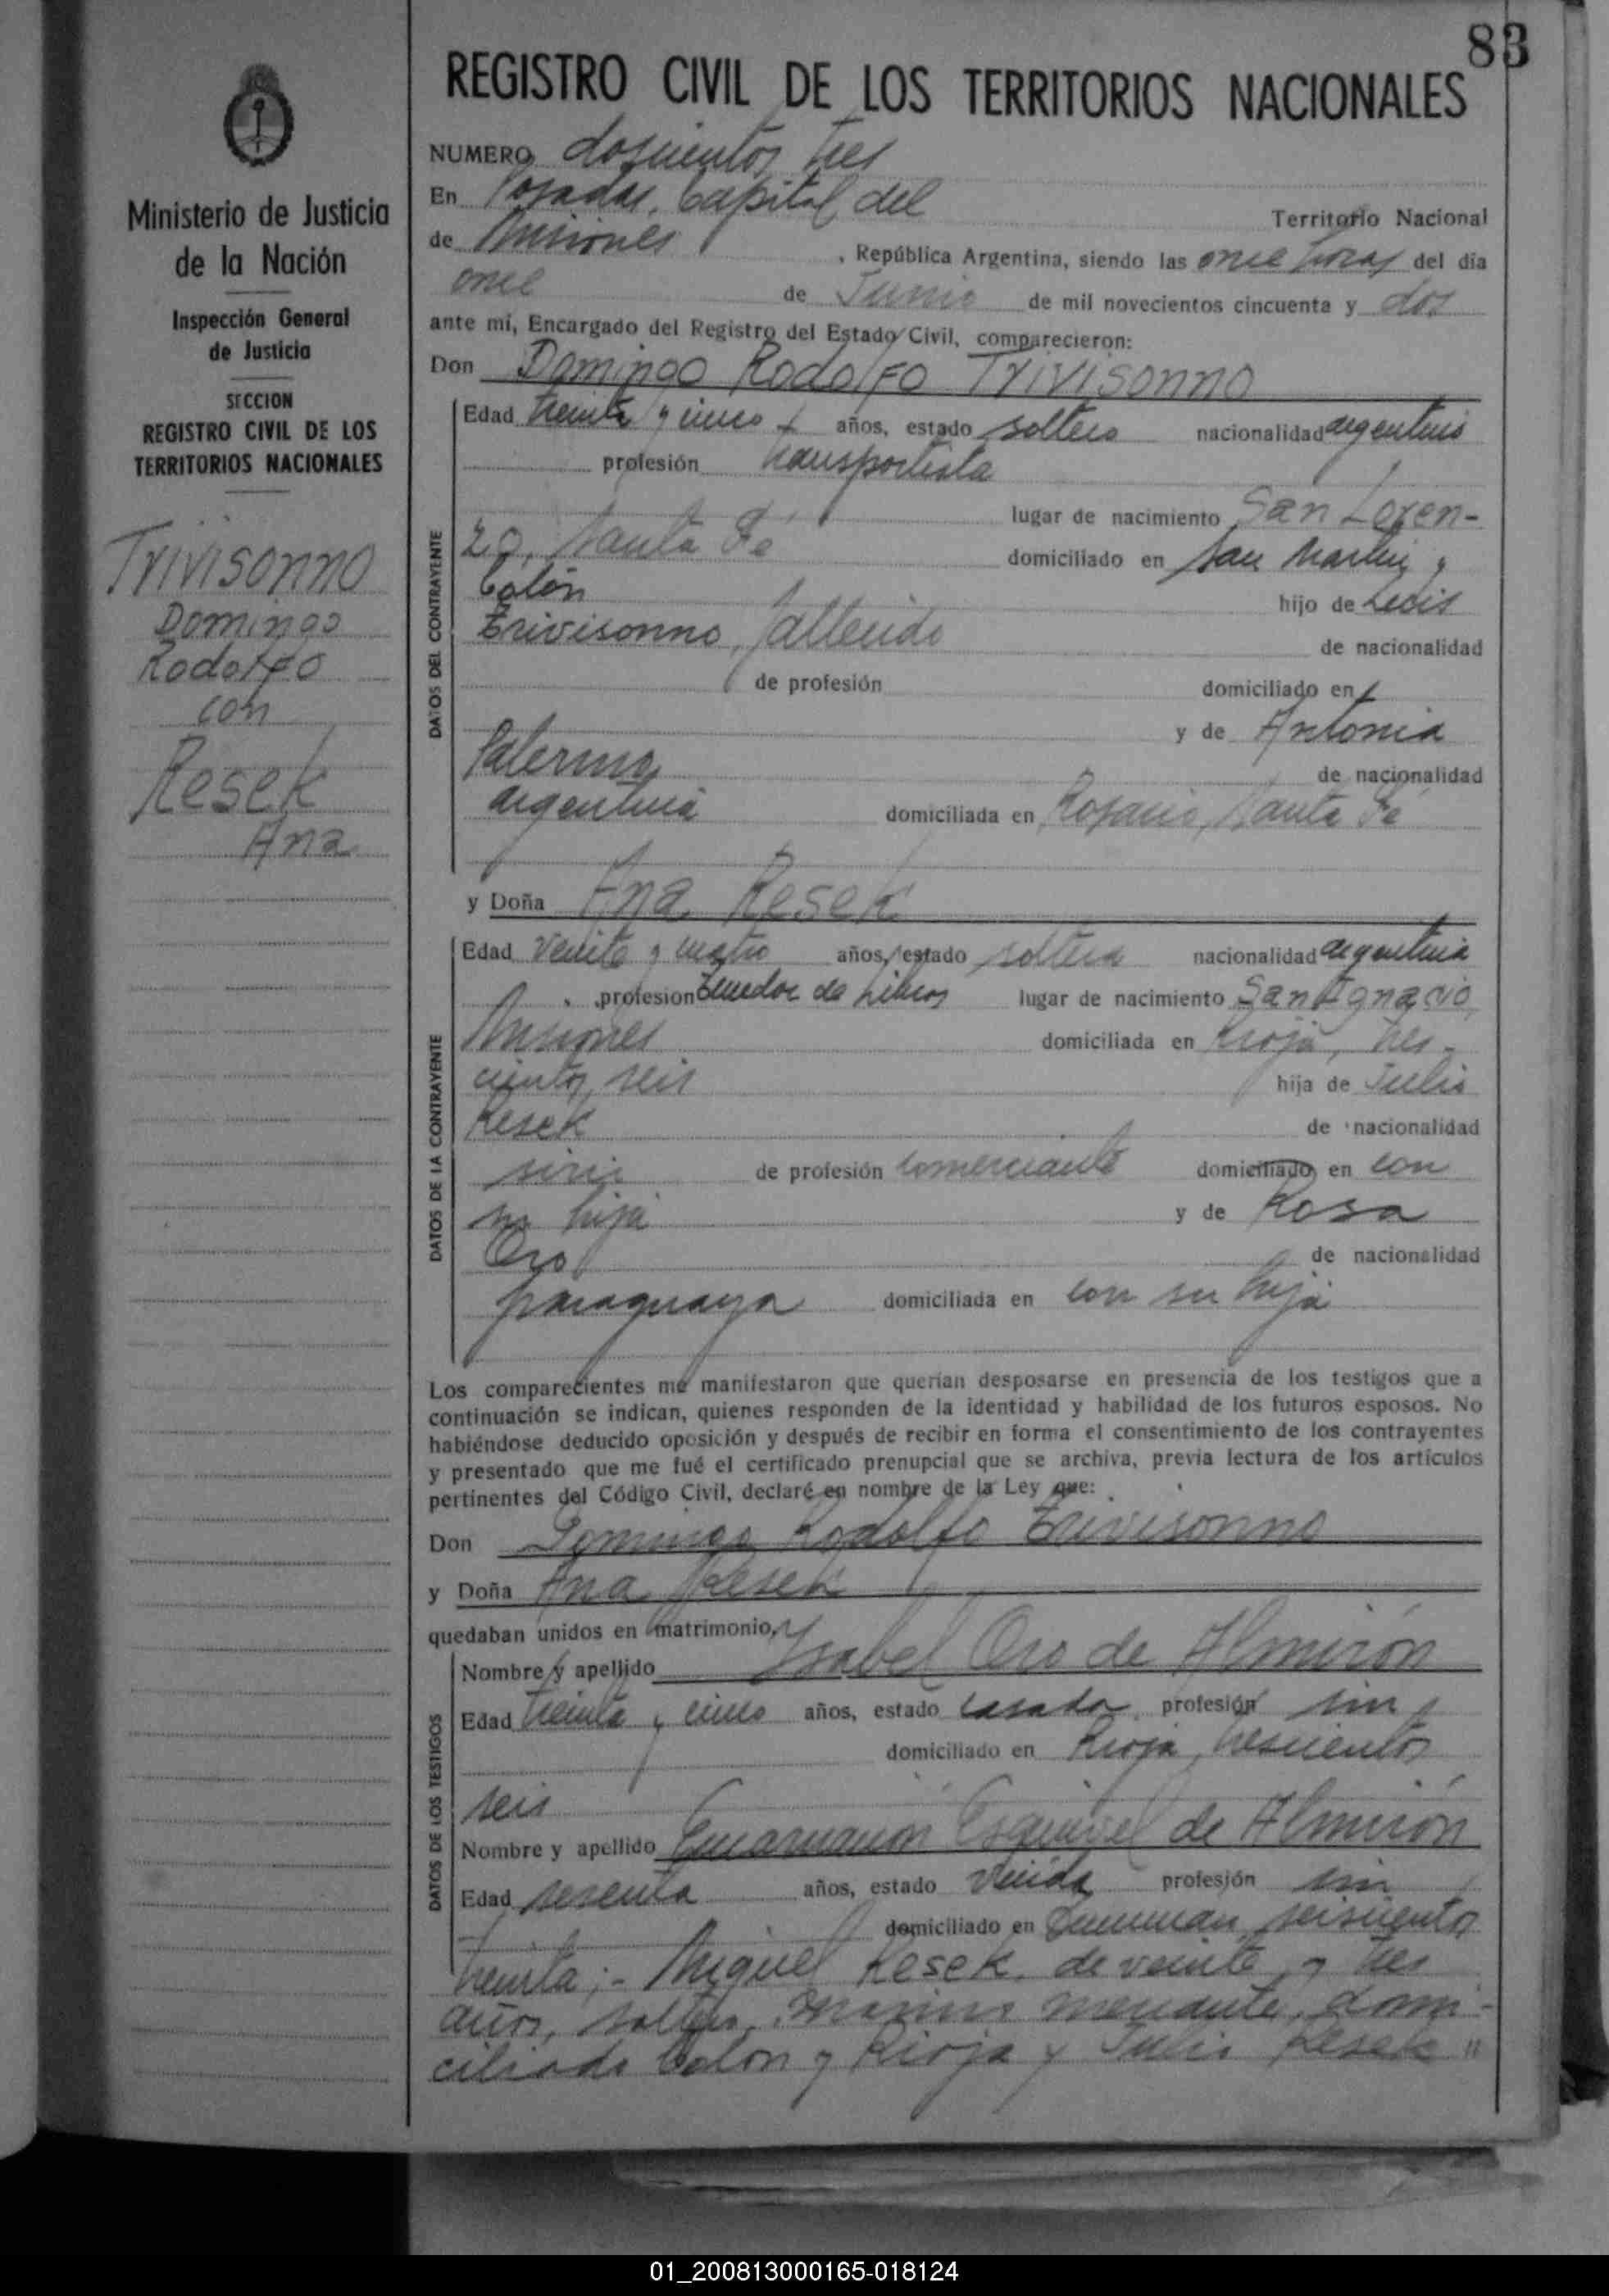 83
REGISTRO CIVIL DE LOS TERRITORIOS NACIONALES
Ministerio de Justicia
de la Nación
Inspección General
de Justicia
SECCION
REGISTRO CIVIL DE LOS
TERRITORIOS NACIONALES
Trivisonno
Domingo
Rodolfo
con
Resek
Ana
NUMERO doscientos tres
En Posadas, Capital del Territorio Nacional
de Misiones, República Argentina, siendo las once horas del día
once de Junio de mil novecientos cincuenta y dos
ante mí, Encargado del Registro del Estado Civil, comparecieron:
Don Domingo Rodolfo Trivisonno
DATOS DEL CONTRAYENTE
Edad treinta y cinco años, estado soltero nacionalidad argentino
profesión transportista
lugar de nacimiento San Loren-
zo, Santa Fé domiciliado en San Martin y
Colón hijo de Luis
Trivisonno, fallecido de nacionalidad
de profesión domiciliado en
y de Antonia
Palermo de nacionalidad
argentina domiciliada en Rosario, Santa Fé
y Doña Ana Resek
DATOS DE LA CONTRAYENTE
Edad veinte y cuatro años, estado soltera nacionalidad argentina
profesion Tenedor de Libros lugar de nacimiento San Ignacio,
Misiones domiciliada en Rioja, tres-
cientos seis hija de Julio
Resek de nacionalidad
sirio de profesión comerciante domiciliado en con
su hija y de Rosa
Oro de nacionalidad
paraguaya domiciliada en con su hija
Los comparecientes me manifestaron que querían desposarse en presencia de los testigos que a
continuación se indican, quienes responden de la identidad y habilidad de los futuros esposos. No
habiéndose deducido oposición y después de recibir en forma el consentimiento de los contrayentes
y presentado que me fué el certificado prenupcial que se archiva, previa lectura de los artículos
pertinentes del Código Civil, declaré en nombre de la Ley que:
Don Domingo Rodolfo Trivisonno
y Doña Ana Resek
quedaban unidos en matrimonio,
DATOS DE LOS TESTIGOS
Nombre y apellido Ysabel Oro de Almirón
Edad treinta y cinco años, estado casada profesión sin
domiciliado en Rioja, trescientos
seis
Nombre y apellido Encarnación Esquivel de Almirón
Edad sesenta años, estado viuda profesión sin
domiciliado en Tucuman, seiscientos
treinta;- Miguel Resek, de veinte y tres
años, soltero, marino mercante, domi-
ciliado Colon y Rioja y Julio Resek "
01_200813000165-018124